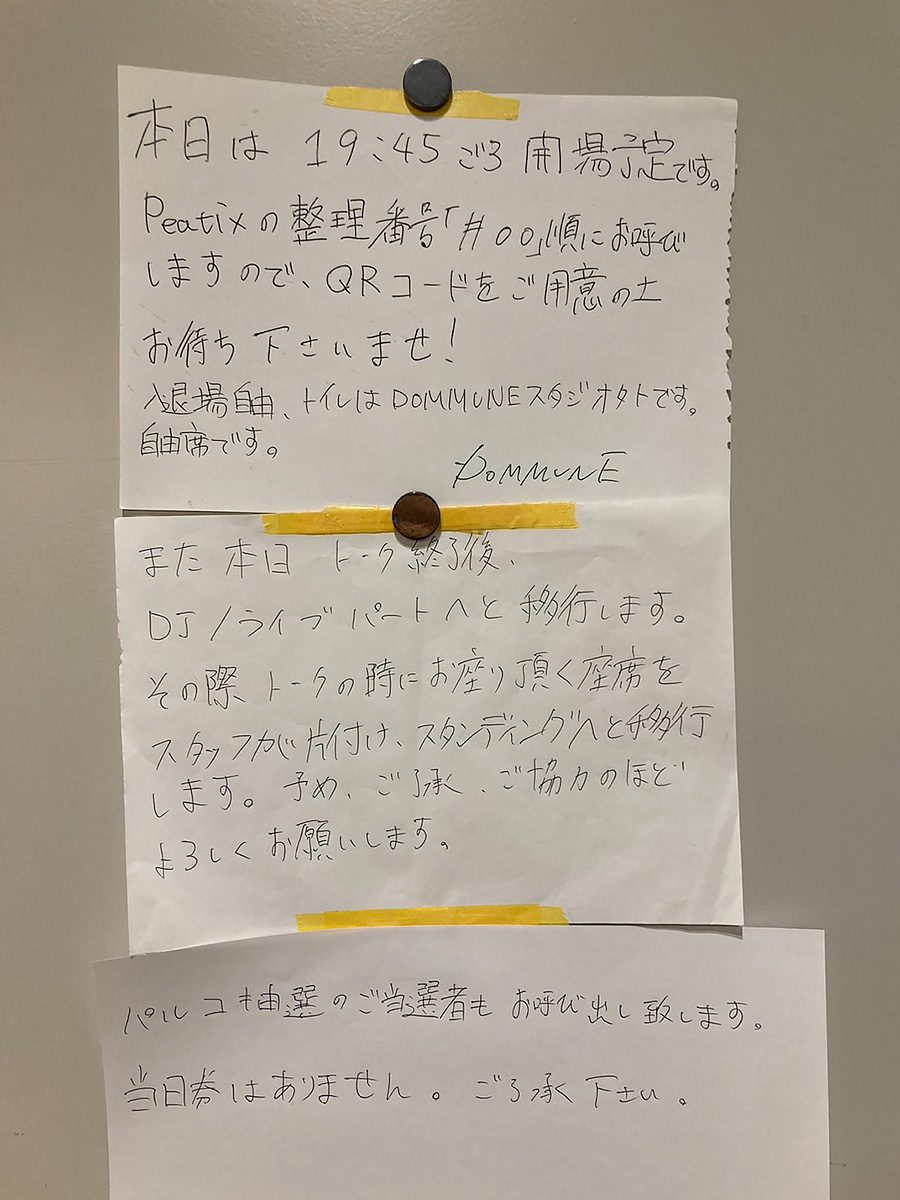 本日は 19:45ごろ 開場予定です。
Peatixの整理番号「#00」順にお呼び
しますので、QRコードをご用意の上
お待ち下さいませ!
入退場自由、トイレはDOMMUNEスタジオ外です。
自由席です。
DOMMUNE
また本日 トーク終了後、
DJ/ライブパートへと移行します。
その際トークの時にお座り頂く座席を
スタッフが片付け、スタンディングへと移行
します。予め、ご了承、ご協力のほど
よろしくお願いします。
パルコ抽選のご当選者もお呼び出し致します。
当日券はありません。ご了承下さい。